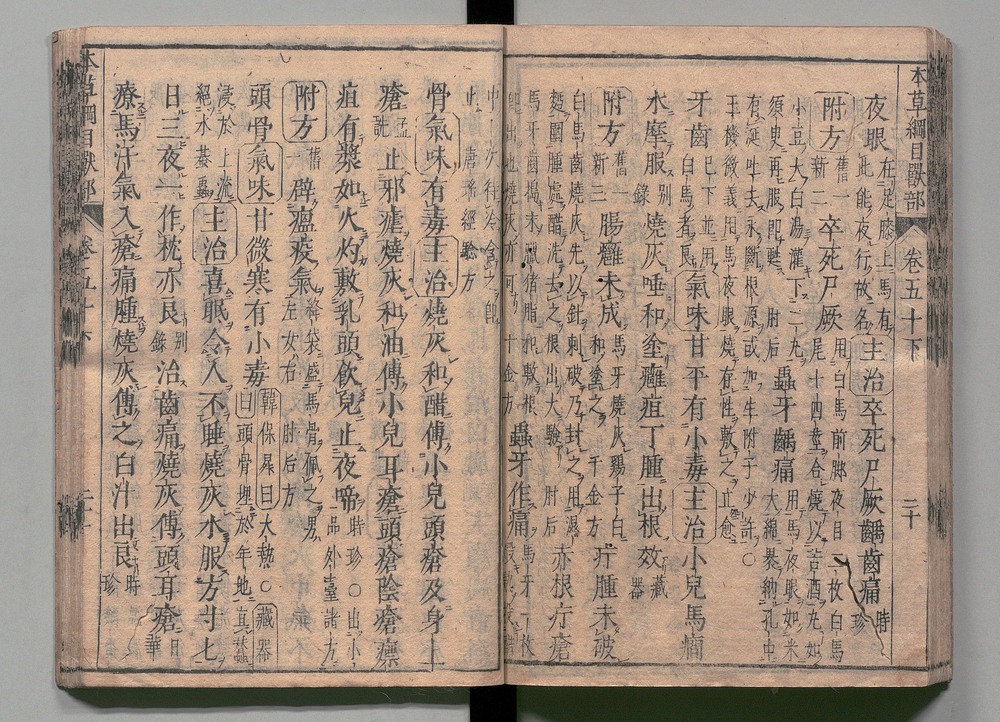 本草綱目獸部 卷五十下 二十
夜眼 在足膝上馬有此能夜行故名 主治 卒死尸厥齲齒痛 時珍
附方 舊一新二 卒死尸厥 用白馬前脚夜目二枚白馬尾十四莖合燒以苦酒丸如
小豆大白湯灌下二丸須臾再服即甦 肘后 蟲牙齲痛 用馬夜眼如米大綿裹納孔中
有涎吐去永斷根源或加生附子少許○玉機微義用馬夜眼燒存性敷之立愈
牙齒 已下並用白馬者良 氣味 甘平有小毒 主治 小兒馬癇
水摩服 別錄 燒灰唾和塗癰疽丁腫出根效 藏器
附方 舊一新三 腸癰未成 馬牙燒灰雞子白和塗之 千金方 疔腫未破
白馬齒燒灰先以針刺破乃封之用濕麪圍腫處醋洗去之根出大驗 肘后 赤根疔瘡
馬牙齒搗末臘猪脂和敷根即出也燒灰亦可 千金方 蟲牙作痛 馬牙一枚
唐瑤經驗方
骨 氣味 有毒 主治 燒灰和醋傅小兒頭瘡及身上
瘡 孟詵 止邪瘧燒灰和油傅小兒耳瘡頭瘡陰瘡瘭
疽有漿如火灼敷乳頭飲兒止夜啼 時珍○出小品外臺諸方
附方 舊一 辟瘟疫氣 絳袋盛馬骨佩之男左女右 肘后方
頭骨 氣味 甘微寒有小毒 韓保昇曰大熱○藏器曰頭骨埋於年地
浸於上流絕水蓋蟲 主治 喜眠令人不睡燒灰水服方寸七
日三夜一作枕亦良 別錄 治齒痛燒灰傅頭耳瘡 日華
療馬汗氣入瘡痛腫燒灰傅之白汁出良 時珍
本草綱目獸部